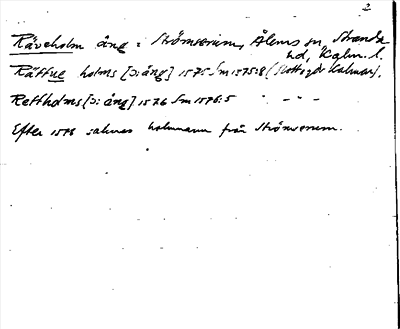 2
Räveholm äng i Strömserum, Ålems sn Stranda
hd, Kalm. l.
Rättue holms [ɔ: äng] 1575 Sm 1575:8 (Slottsg. Kalmar).
Reffholms [ɔ: äng] 1576 Sm 1576:5 " - " -
Efter 1576 saknas holmnamn från Strömserum.